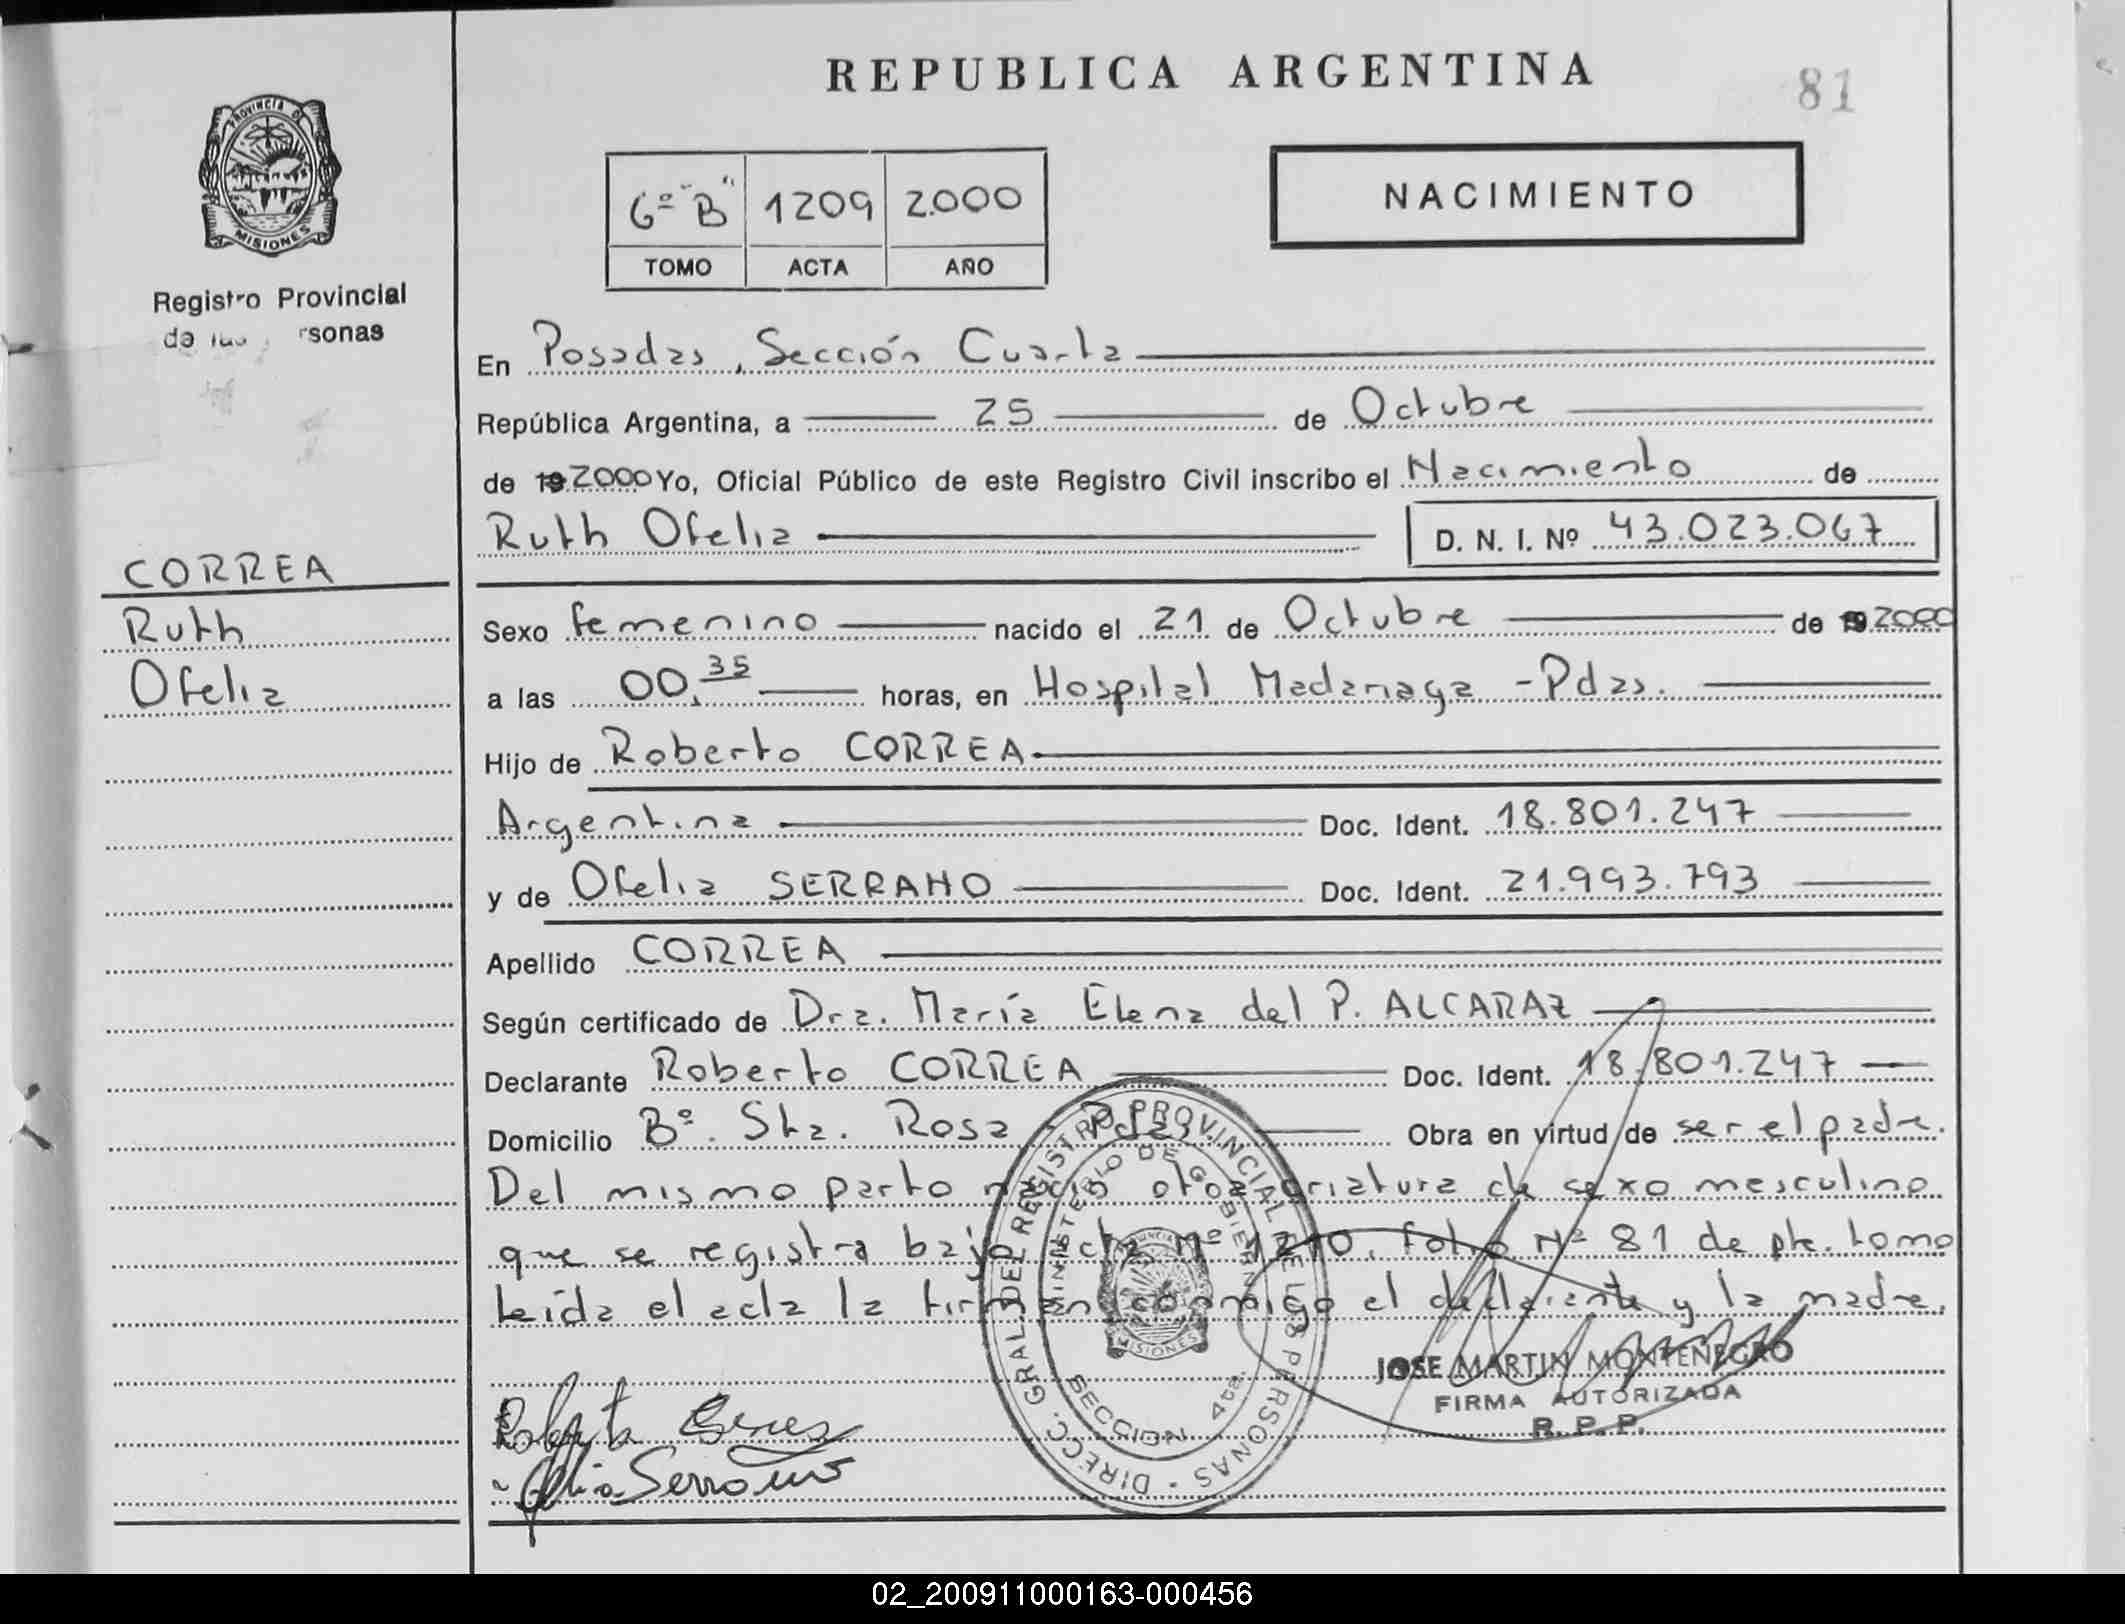 REPUBLICA ARGENTINA
81
PROVINCIA DE
MISIONES
Registro Provincial
de las rsonas
6º "B" 1209 2.000
TOMO ACTA AÑO
NACIMIENTO
En Posadas, Sección Cuarta
República Argentina, a 25 de Octubre
de 19 2000 Yo, Oficial Público de este Registro Civil inscribo el Nacimiento de
Ruth Ofelia D. N. I. Nº 43.023.067
CORREA
Ruth
Ofelia
Sexo femenino nacido el 21 de Octubre de 19 2000
a las 00,35 horas, en Hospital Madariaga - Pdas.
Hijo de Roberto CORREA
Argentina Doc. Ident. 18.801.247
y de Ofelia SERRANO Doc. Ident. 21.993.793
Apellido CORREA
Según certificado de Dra. María Elena del P. ALCARAZ
Declarante Roberto CORREA Doc. Ident. 18.801.247
Domicilio Bº. Sta. Rosa Pdas. Obra en virtud de ser el padre.
Del mismo parto nació otra criatura de sexo masculino
que se registra bajo acta nº 1210, folio Nº 81 de pte. tomo
Leída el acta la firman conmigo el declarante y la madre.
DIRECC. GRAL. DEL REGISTRO PROVINCIAL DE LAS PERSONAS
MINISTERIO DE GOBIERNO
SECCION 4ta.
MISIONES
JOSE MARTIN MONTENEGRO
FIRMA AUTORIZADA
R. P. P.
Roberto Correa
Ofelia Serrano
02_200911000163-000456